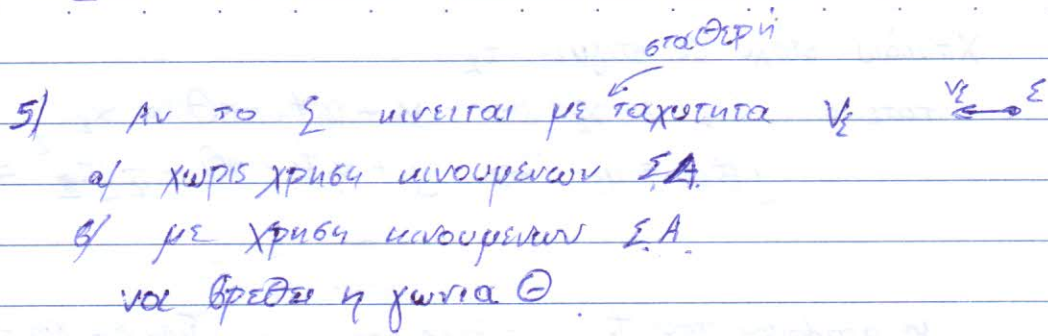 σταθερή
5) Αν το Σ κινειται με ταχυτητα V_Σ V_Σ Σ
α) χωρις χρηση κινουμενων ΣΑ.
β) με χρηση κινουμενων Σ.Α.
να βρεθει η γωνια Θ